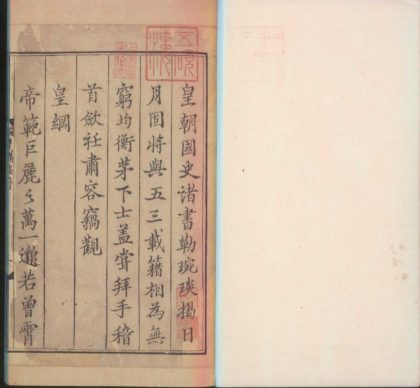 皇朝國史諸書勒琬琰揭日
月固將與五三載籍相為無
窮均衡茅下士蓋嘗拜手稽
首斂衽肅容竊觀
皇綱
帝範巨麗之萬一邈若曾霄